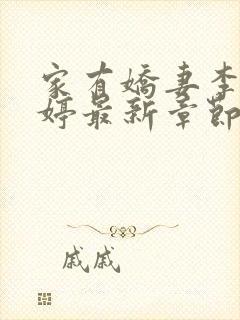 家有嬌妻李
婷最新章節
戚戚